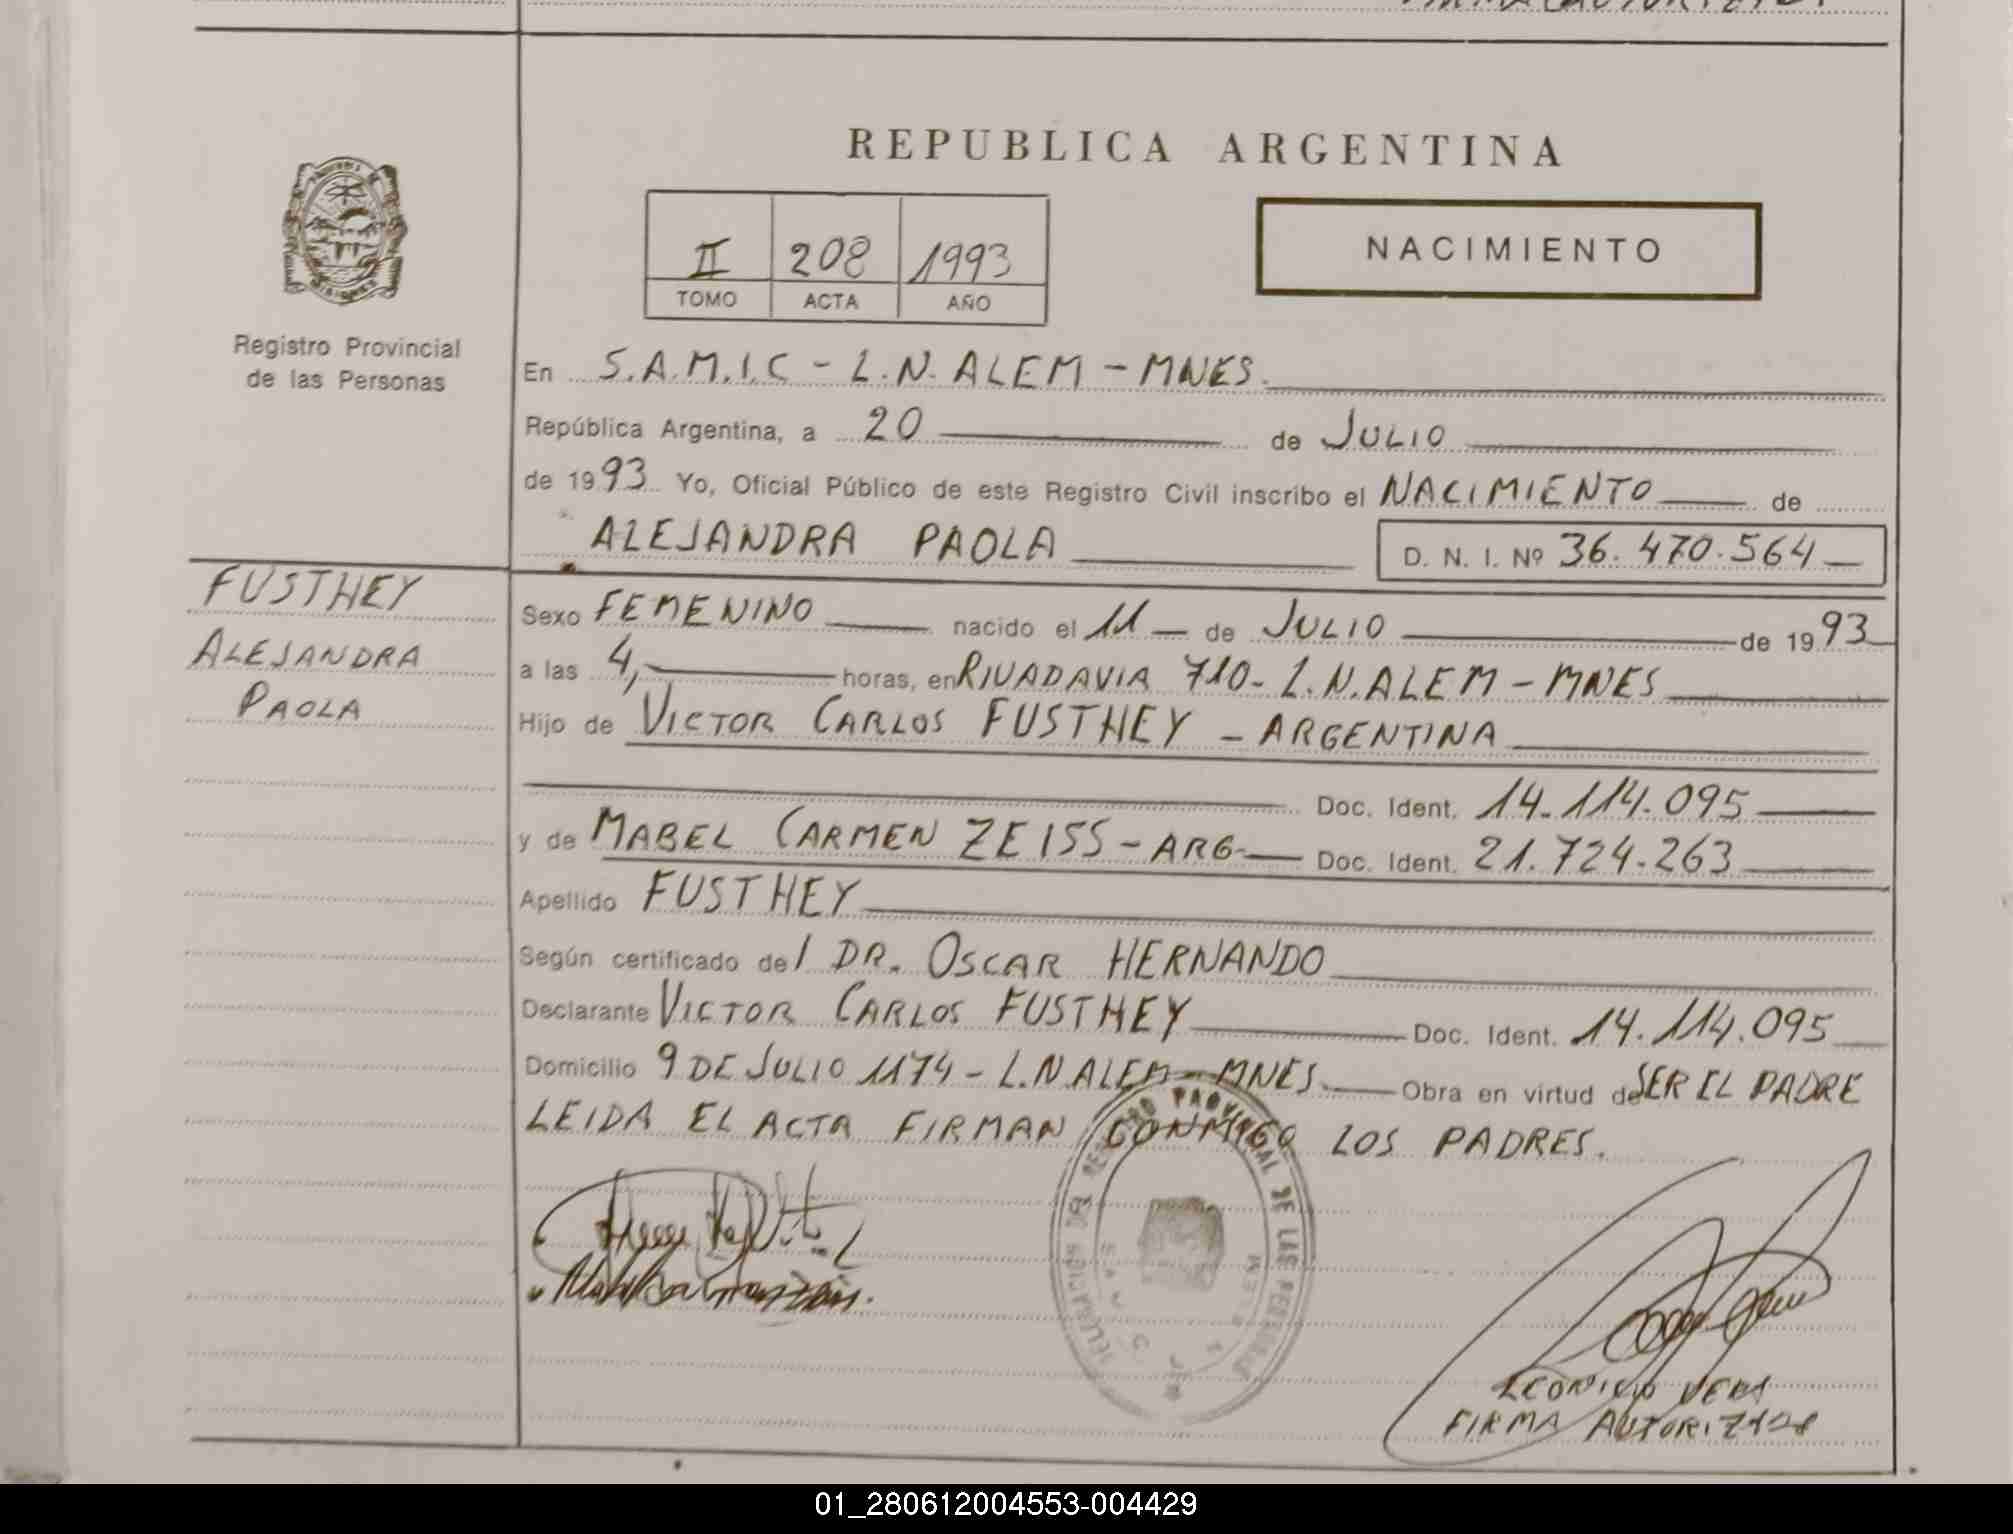 REPUBLICA ARGENTINA
II 208 1993
TOMO ACTA AÑO
NACIMIENTO
Registro Provincial
de las Personas
En S.A.M.I.C - L.N. ALEM - MNES.
República Argentina, a 20 de JULIO
de 1993 Yo, Oficial Público de este Registro Civil inscribo el NACIMIENTO de
ALEJANDRA PAOLA D. N. I. Nº 36.470.564
FUSTHEY
ALEJANDRA
PAOLA
Sexo FEMENINO nacido el 11 de JULIO de 1993
a las 4, horas, en RIVADAVIA 710 - L.N. ALEM - MNES
Hijo de VICTOR CARLOS FUSTHEY - ARGENTINA
Doc. Ident. 14.114.095
y de MABEL CARMEN ZEISS - ARG- Doc. Ident. 21.724.263
Apellido FUSTHEY
Según certificado del DR. OSCAR HERNANDO
Declarante VICTOR CARLOS FUSTHEY Doc. Ident. 14.114.095
Domicilio 9 DE JULIO 1174 - L.N ALEM - MNES. Obra en virtud de SER EL PADRE
LEIDA EL ACTA FIRMAN CONMIGO LOS PADRES.
VERA
FIRMA AUTORIZADA
01_280612004553-004429